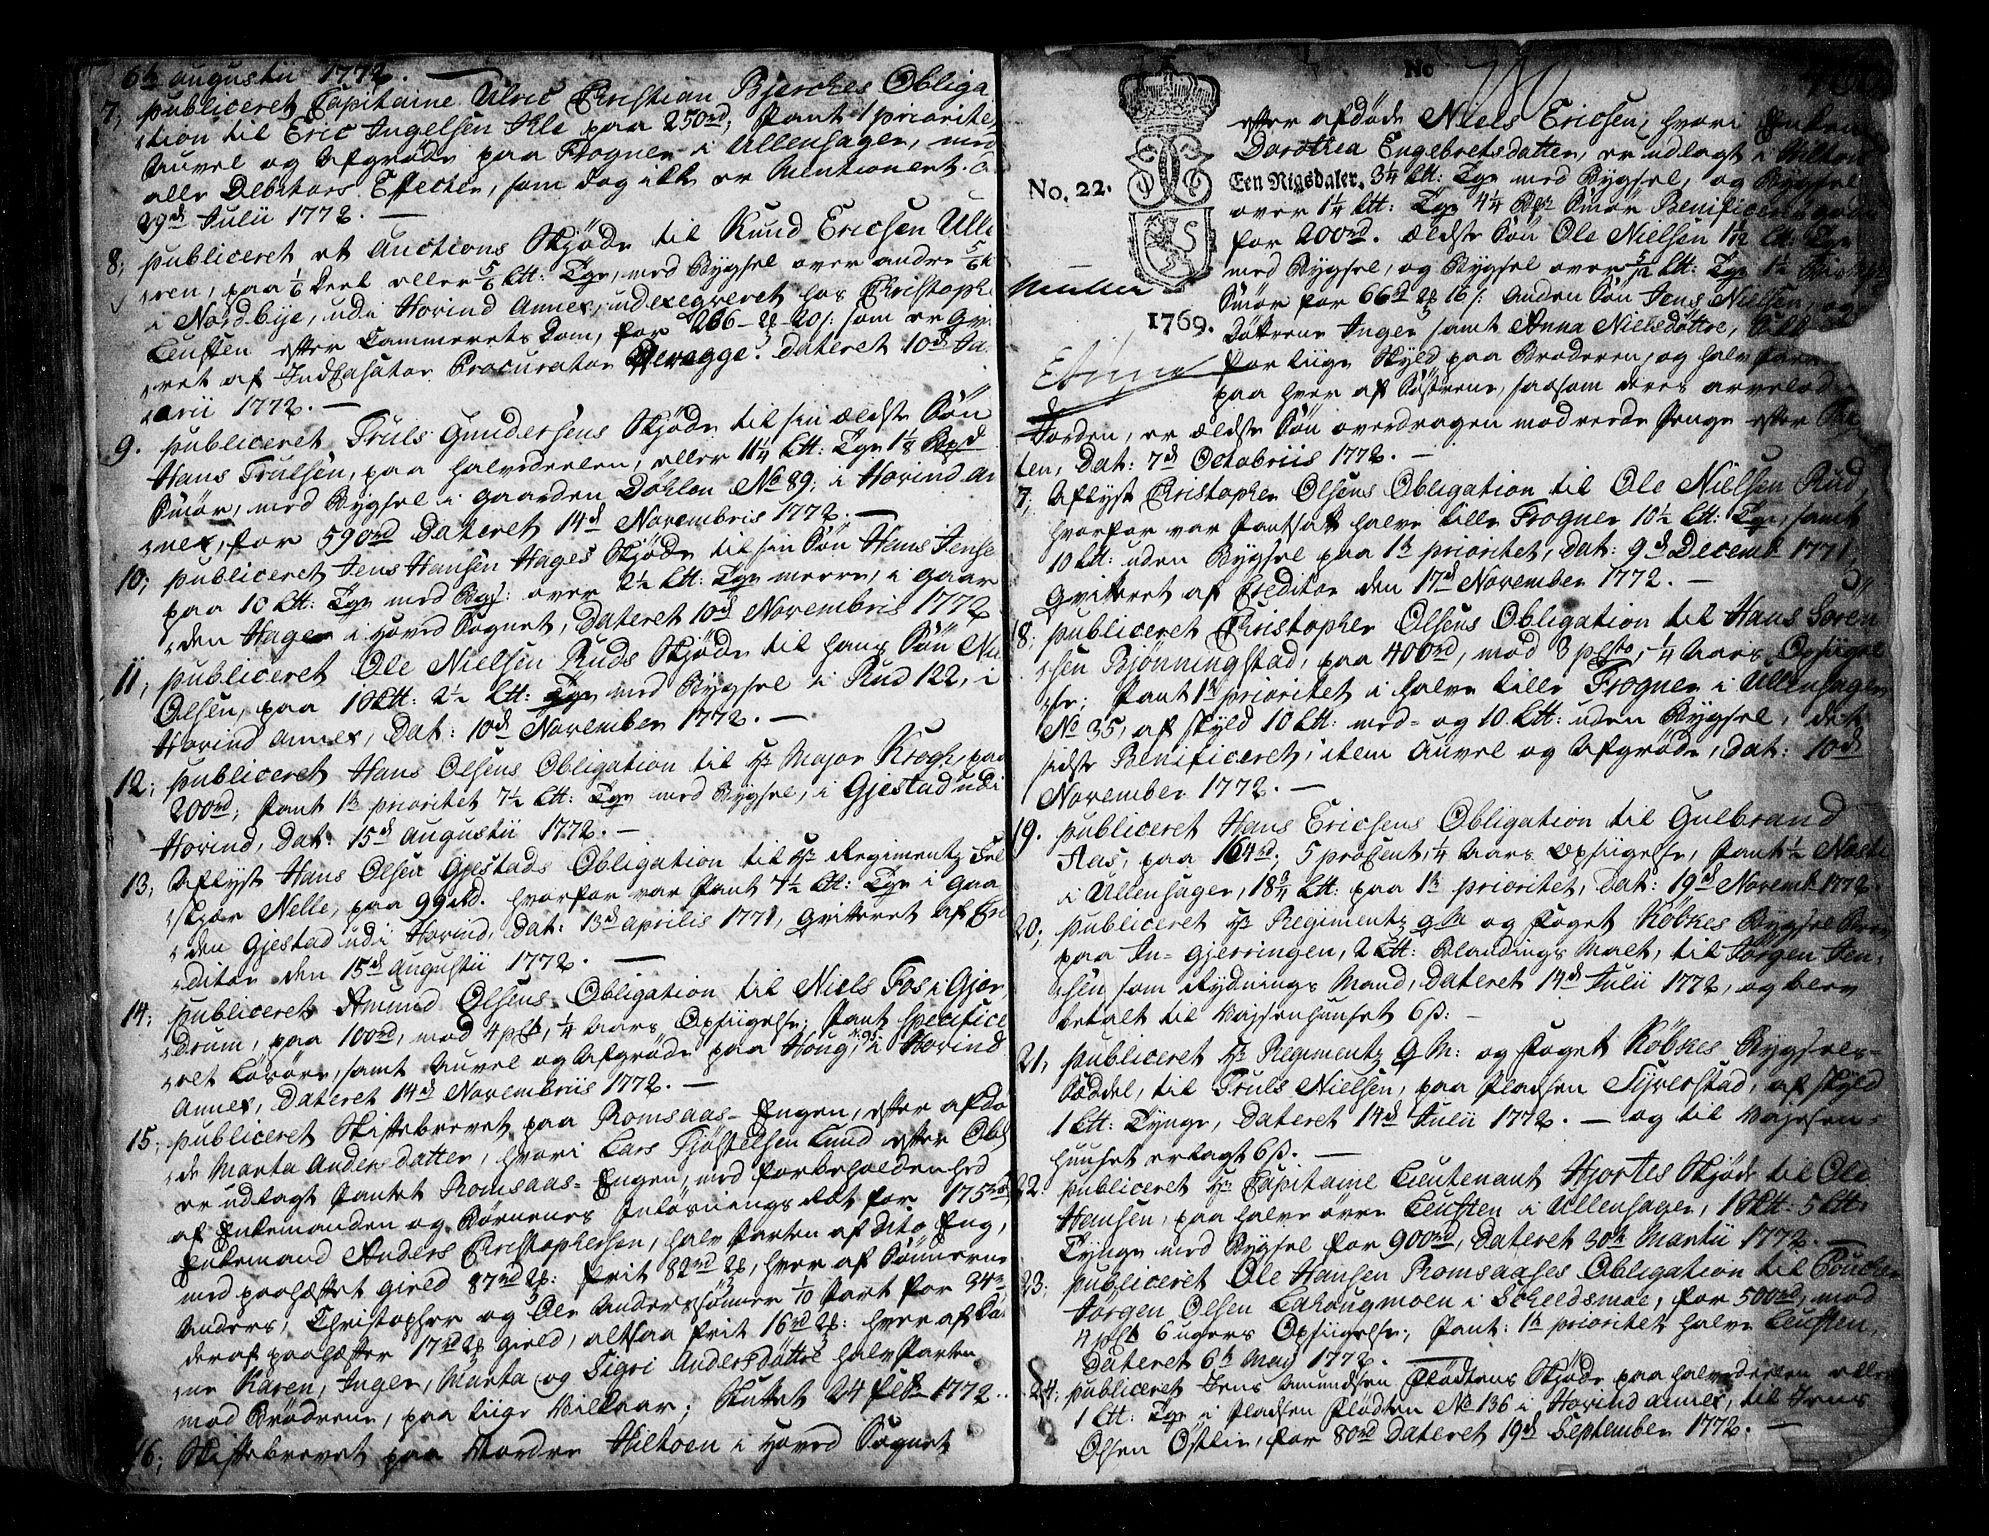 6th augustii 1772. —
7, publiceret Capitaine Ulric Christian Bjerckes Obliga
tion til Eric Ingelsen Kle paa 250rd, Pant 1 prioritet
Auvel og Afgrøde paa Frogner i Ullensager, med
alle Debitors Effecter, som dog ikke er Mentioneret.
29de Julii 1772. —
8, publiceret et Auctions Skjøde til Knud Ericsen Ulle
ren, paa 1/6 deel eller 5/6 Ltt: Tge, med Bygsel over andre 5/6
i Nordbye, udi Hovind Annex, udexeqveret hos Christophe
Leufsten efter Cammerets Dom, for 266 - 2 - 20 s: som er qv
ret af IndCasator Procurator Devegge. Dateret 10de Ja
arii 1772. —
9. publiceret Truls Gundersens Skjøde til sin ældste Søn
Hans Trulsen, paa halvedeelen, eller 11 1/4 Ltt: Tge 1 1/8 Bpd
Smør, med Bygsel i gaarden Døhlen No 89, i Hovind An
nex, for 590rd Dateret 14de Novembris 1772. —
10, publiceret Jens Hansen Hages Skjøde til sin Søn Hans Jense
paa 10 Ltt: Tge med Bygs: over 2 1/2 Ltt: Tge meere, i gaar
den Hagen i Hoved Sognet, Dateret 10de Novembris 1772
11, publiceret Ole Nielsen Ruds Skjøde til hans Søn Nie
Olsen, paa 1 Ltt: 2 1/2 Ltt: Tge med Bygsel i Rud 122, i
Hovind Annex, Dat: 10de November 1772. —
12, publiceret Hans Olsens Obligation til Hr Major Krogh, paa
200rd, Pant 1te prioritet 7 1/2 Ltt: Tge med Bygsel, i Gjestad udi
Hovind, Dat: 15de Augustii 1772. —
13, Aflyst Hans Olsen Gjestads Obligation til Hr Regimentz Fel
skjær Nelle, paa 99rd. hvorfor var Pant 7 1/2 Lt: Tge i Gaa
den Gjestad udi Hovind, Dat: 13de aprilis 1771, Qvitteret af Cre
ditor den 15de Augustii 1772. —
14, publiceret Amund Olsens Obligation til Niels Fos i Gjer
Drum, paa 100rd, med 4 pCt, 1/4 Aars Opsiigelse, Pant specifice
ret Løsøre, samt Auvel og Afgrøde paa Houg, i Hovind
Annex, Dateret 14de Novembriis 1772. —
15, publiceret Skiftebrevet paa Romsaas-Engen, efter afdø
de Marta Andersdatter, hvori Lars Kjøstelsen Lund efter Obl
er udlagt Pantet Romsaas-Engen, med Forbeholdenhed
af Enkemanden og Børnenes Indløsnings Ret for 175rd
Enkemand Anders Christophersen, halv Parten af Dito Eng,
med paahæftet gield 87rd 2: Frit 82rd 2, hver af Sønnerne
Anders, Christopher og Ole Anderssønner 1/10 Part for 34
deraf paahæfter 17rd 2 gield, altsaa frit 16rd 2: hver af Dø
ne Karen, Inger, Marta og Sigri Andersdøttre halv Parten
mod Brødrene, paa liige Vilkaar; Sluttet 24 febr 1772.
16, Skiftebrevet paa Nordre Hiltoen i Hoved Sognet
No
No. 22.
Een Rigsdaler.
1769.
efter afdøde Niels Ericsen, hvori Enken
Dorothea Engebretsdatter, er udlagt i Hilton
3 1/4 Ltt: Tge med Bygsel, og Bygsel
over 1 1/4 Ltt: Tge 4 1/4 Bpd Smør Beneficeret gods
for 200rd. ældste Søn Ole Nielsen 1 1/12 Lt: Tge
med Bygsel, og Bygsel over 5/12 Ltt: Tge 1 1/2
Smør for 66rd 2 16 s: Anden Søn Jens Nielsen, og
Døttrene Inger samt Anna Nielsdøttre,
for liige Skyld paa Broderen, og halv Parten
paa hver af Søstrene, saasom deres arvelod
Jorden, er ældste Søn overdragen mod reede Penge efter
ten, Dat: 7de Octobriis 1772. —
7, Aflyst Christopher Olsens Obligation til Ole Nielsen Rud,
hvorfor var Pantsat halve lille Frogner 10 1/2 Ltt: Tge, samt
10 Lt: uden Bygsel paa 1te prioritet, Dat: 9de Decembr 1771,
Qvitteret af Creditor den 17de November 1772. —
18, publiceret Christopher Olsens Obligation til Hans Søren
sen Bjønningstad, paa 400rd, mod 3 pCto, 1/4 Aars Opsiigel
se, Pant 1te prioritet i halve lille Frogner i Ullensager
No 35, af skyld 10 Ltt: med- og 10 Ltt: uden Bygsel, det
sidste Benificeret, item Auvel og Afgrøde, Dat: 10de
November 1772. —
19. publiceret Hans Ericsens Obligation til Gulbrand
Aas, paa 164rd. 5 proCent, 1/4 Aars Opsiigelse, Pant 1/2
i Ullensager, 18 3/4 Ltt: paa 1te prioritet, Dat: 19de Novembr 1772.
20, publiceret Hr Regimentz QM og Foget Købkes Bygsel Brev
paa In-Gjerringen, 2 Ltt: Blandings Malt, til Jørgen Jen
sen som Rydnings Mand, Dateret 14de Julii 1772, og blev
betalt til Vaysenhuuset 6 s: —
21, publiceret Hr Regimentz QM: og Foget Købkes Bygsel-
Seddel, til Truls Nielsen, paa Pladsen Sÿverstad, af skyld
1 Ltt: Tynge, Dateret 14de Julii 1772. — og til Vaysen-
huuset erlagt 6 s. —
22. publiceret Hr Capitaine Lieutenant Hjortes Skjøde til Ole
Hansen, paa halve øvre Leufsten i Ullensager, 1 Ltt: 5 Ltt:
Tynge med Bygsel for 900rd, Dateret 30te Martii 1772. —
23, publiceret Ole Hansen Romsaases Obligation til
Jørgen Olsen Lahaugmoen i Scheedsmoe, for 500rd, mod
4 pCt 6 ugers Opsiigelse, Pant: 1te prioritet halve Leufsten,
Dateret 6te May 1772. —
24, publiceret Jens Amundsen Flødtens Skjøde paa halvedeelen eller
1 Ltt: Tge i Pladsen Flødten No 136 i Hovind Annex, til Jens
Olsen Ostlie, for 80rd Dateret 19de September 1772. —